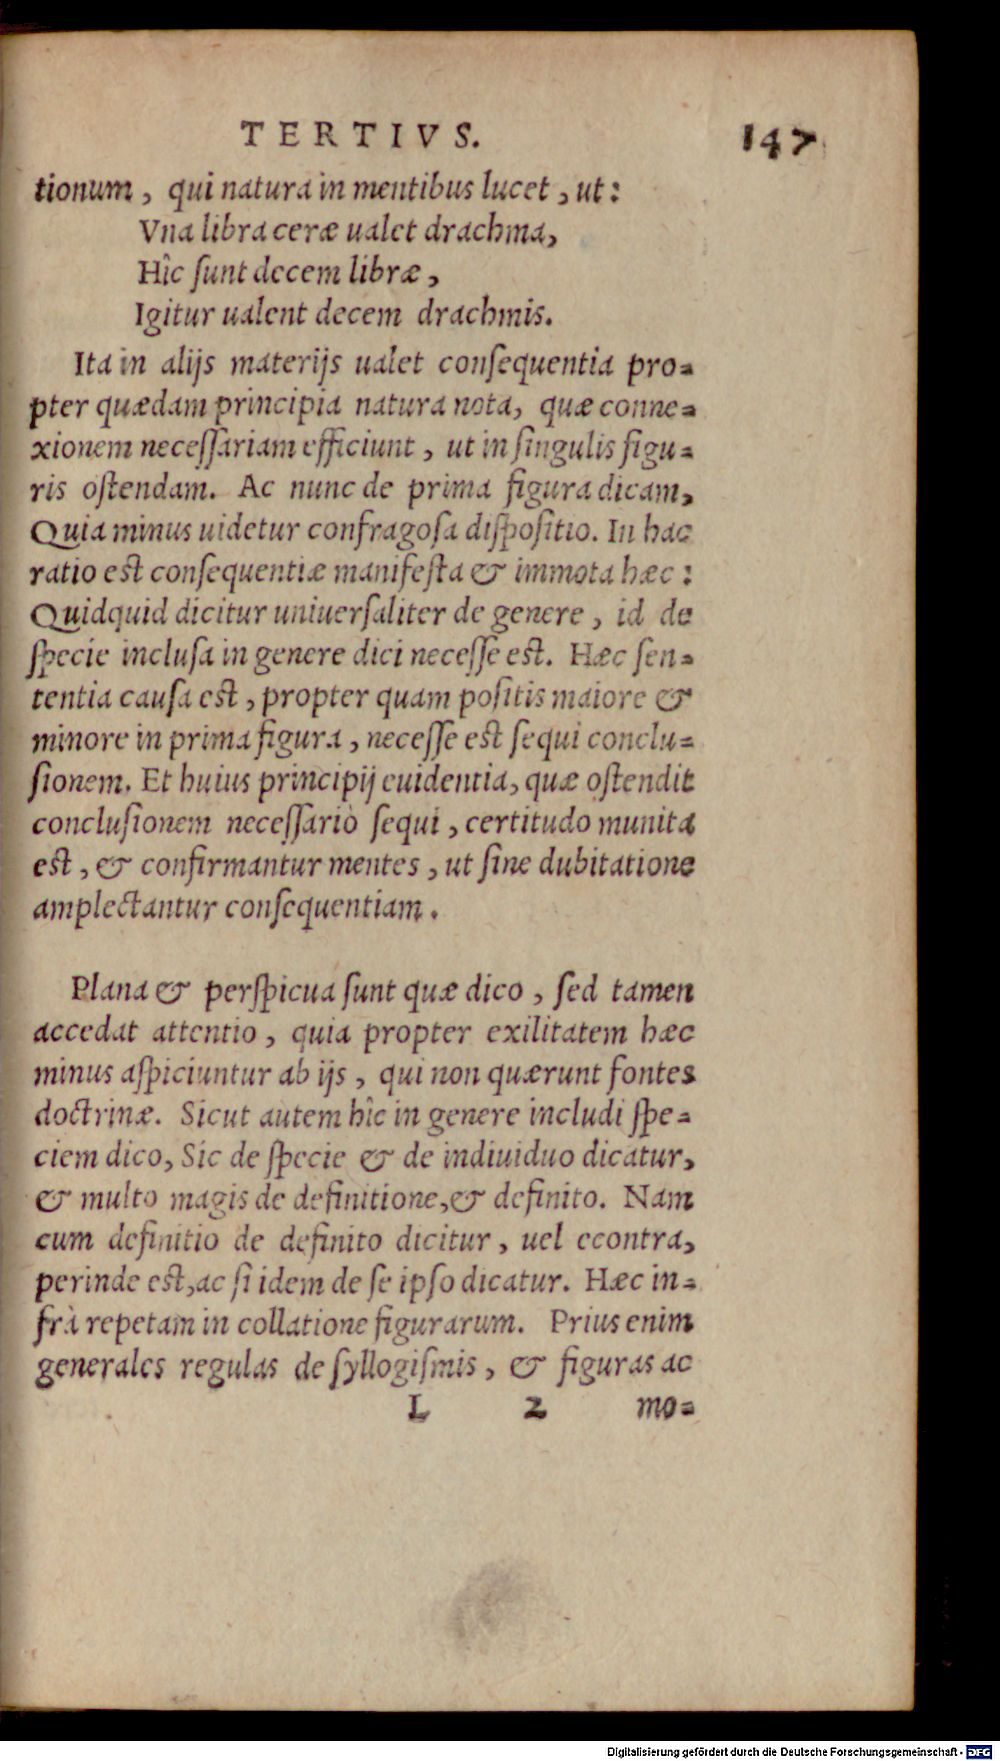 TERTIVS. 147
tionum, qui natura in mentibus lucet, ut:
Vna libra ceræ ualet drachma,
Hîc ſunt decem libræ,
Igitur ualent decem drachmis.
Ita in alijs materijs ualet conſequentia pro-
pter quædam principia natura nota, quæ conne-
xionem neceſſariam efficiunt, ut in ſingulis figu-
ris oſtendam. Ac nunc de prima figura dicam,
Quia minus uidetur confragoſa diſpoſitio. In hac
ratio eſt conſequentiæ manifeſta & immota hæc:
Quidquid dicitur uniuerſaliter de genere, id de
ſpecie incluſa in genere dici neceſſe eſt. Hæc ſen-
tentia cauſa eſt, propter quam poſitis maiore &
minore in prima figura, neceſſe eſt ſequi conclu-
ſionem. Et huius principij euidentia, quæ oſtendit
concluſionem neceſſariò ſequi, certitudo munita
eſt, & confirmantur mentes, ut ſine dubitatione
amplectantur conſequentiam.
Plana & perſpicua ſunt quæ dico, ſed tamen
accedat attentio, quia propter exilitatem hæc
minus aſpiciuntur ab ijs, qui non quærunt fontes
doctrinæ. Sicut autem hîc in genere includi ſpe-
ciem dico, Sic de ſpecie & de indiuiduo dicatur,
& multo magis de definitione, & definito. Nam
cum definitio de definito dicitur, uel econtra,
perinde eſt, ac ſi idem de ſe ipſo dicatur. Hæc in-
frà repetam in collatione figurarum. Prius enim
generales regulas de ſyllogiſmis, & figuras ac
L 2 mo-
Digitalisierung gefördert durch die Deutsche Forschungsgemeinschaft - DFG